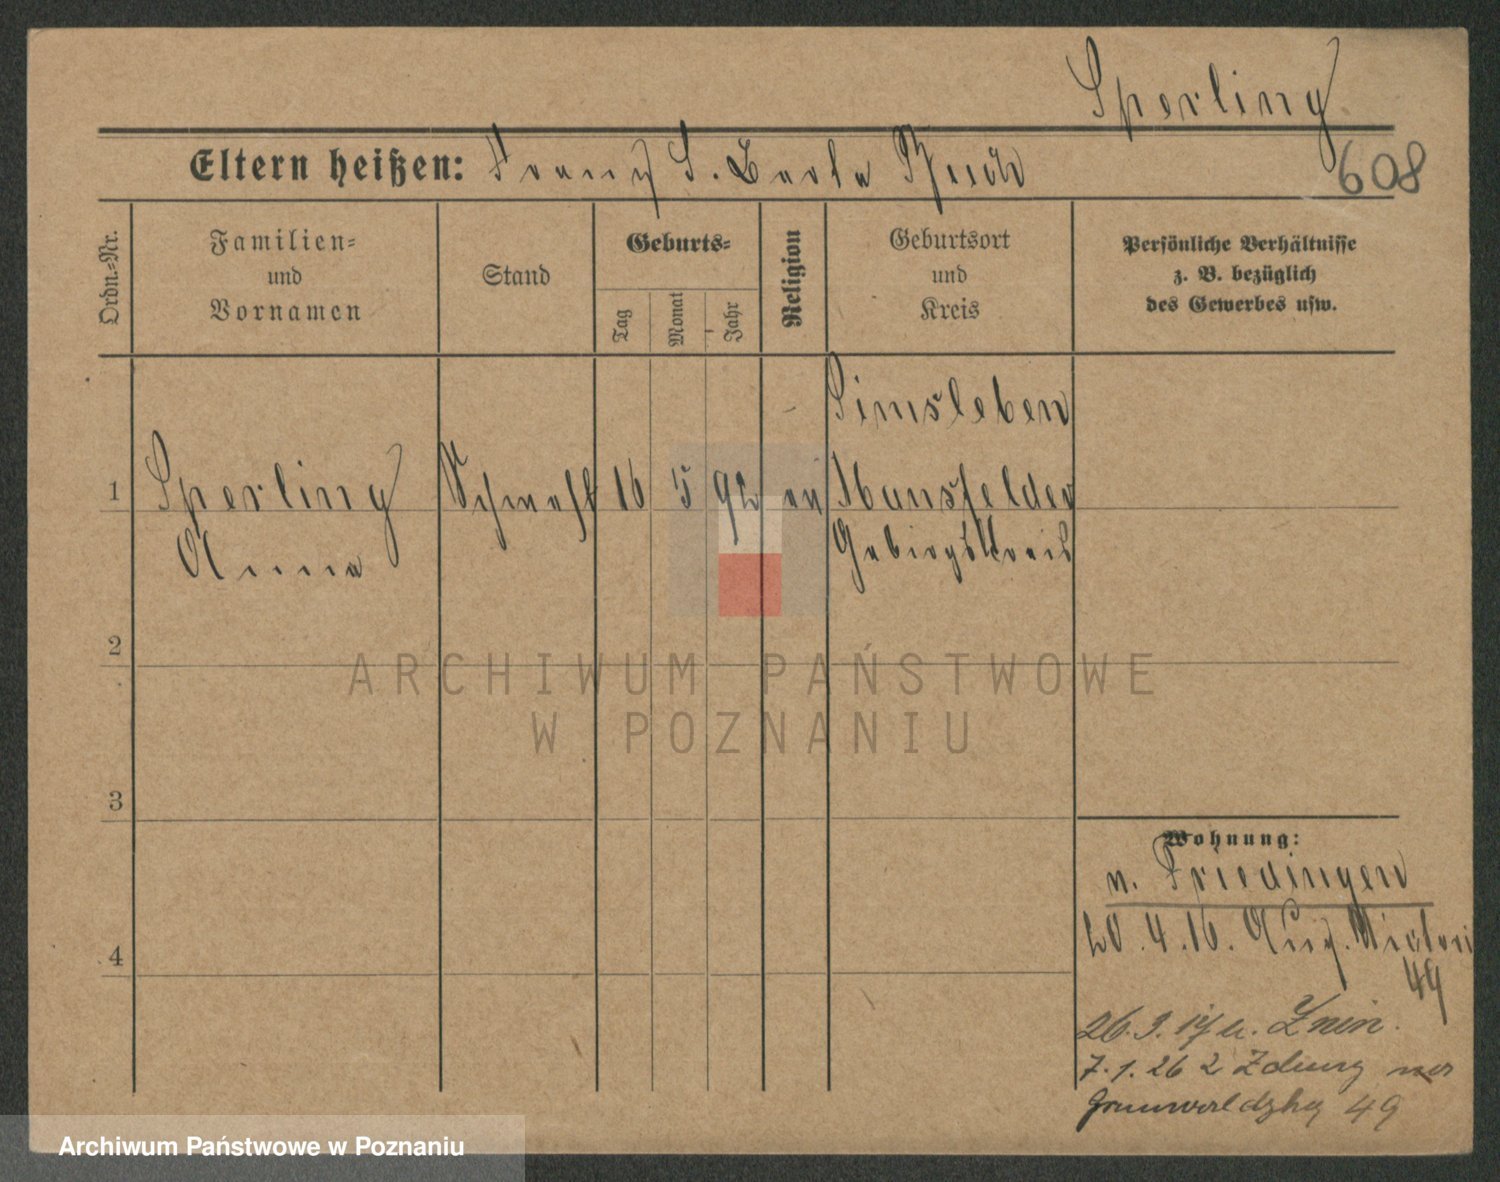 Sperling
608
Eltern heißen: Franz S. Berta
Ordn.=Nr.
Familien=
und
Vornamen
Stand
Geburts=
Tag
Monat
Jahr
Religion
Geburtsort
und
Kreis
Persönliche Verhältnisse
z. B. bezüglich
des Gewerbes usw.
1
Sperling
Anna
16
5
92
ev
Mansfelder
Gebirgskreis
2
3
4
Wohnung:
n. Friedingen
20.4.16. Aug. Victori
49
26.3.17 u. Znin.
7.1.26 z
Grunwaldzka 49
ARCHIWUM PAŃSTWOWE
W POZNANIU
Archiwum Państwowe w Poznaniu